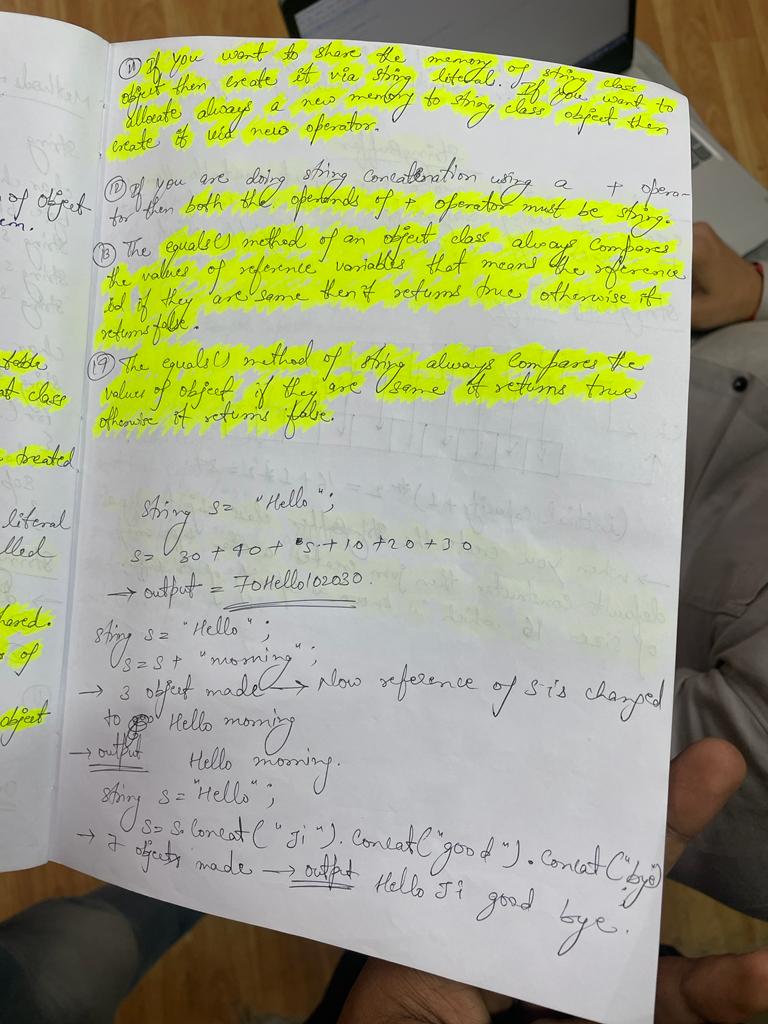 of object
em.
table
at class
treated
literal
lled
hared.
s of
object
(11) If you want to share the memory of string class
object then create it via string literal. If you want to
allocate always a new memory to string class object then
create it via new operator.
(12) If you are doing string concatenation using a + opera-
tor then both the operands of + operator must be string.
(13) The equals() method of an object class always compares
the values of reference variables that means the reference
id if they are same then it returns true otherwise it
returns false.
(14) The equals() method of string always compares the
values of object if they are same it returns true
otherwise it returns false.
string s= "Hello";
s= 30 + 40 + s + 10 + 20 + 30
→ output = 70Hello102030.
string s= "Hello";
s= s + "morning";
→ 3 object made → Now reference of s is changed
to Hello morning
→ output Hello morning.
string s= "Hello";
s= s.concat("Ji").concat("good").concat("bye")
→ 7 objects made → output Hello Ji good bye.